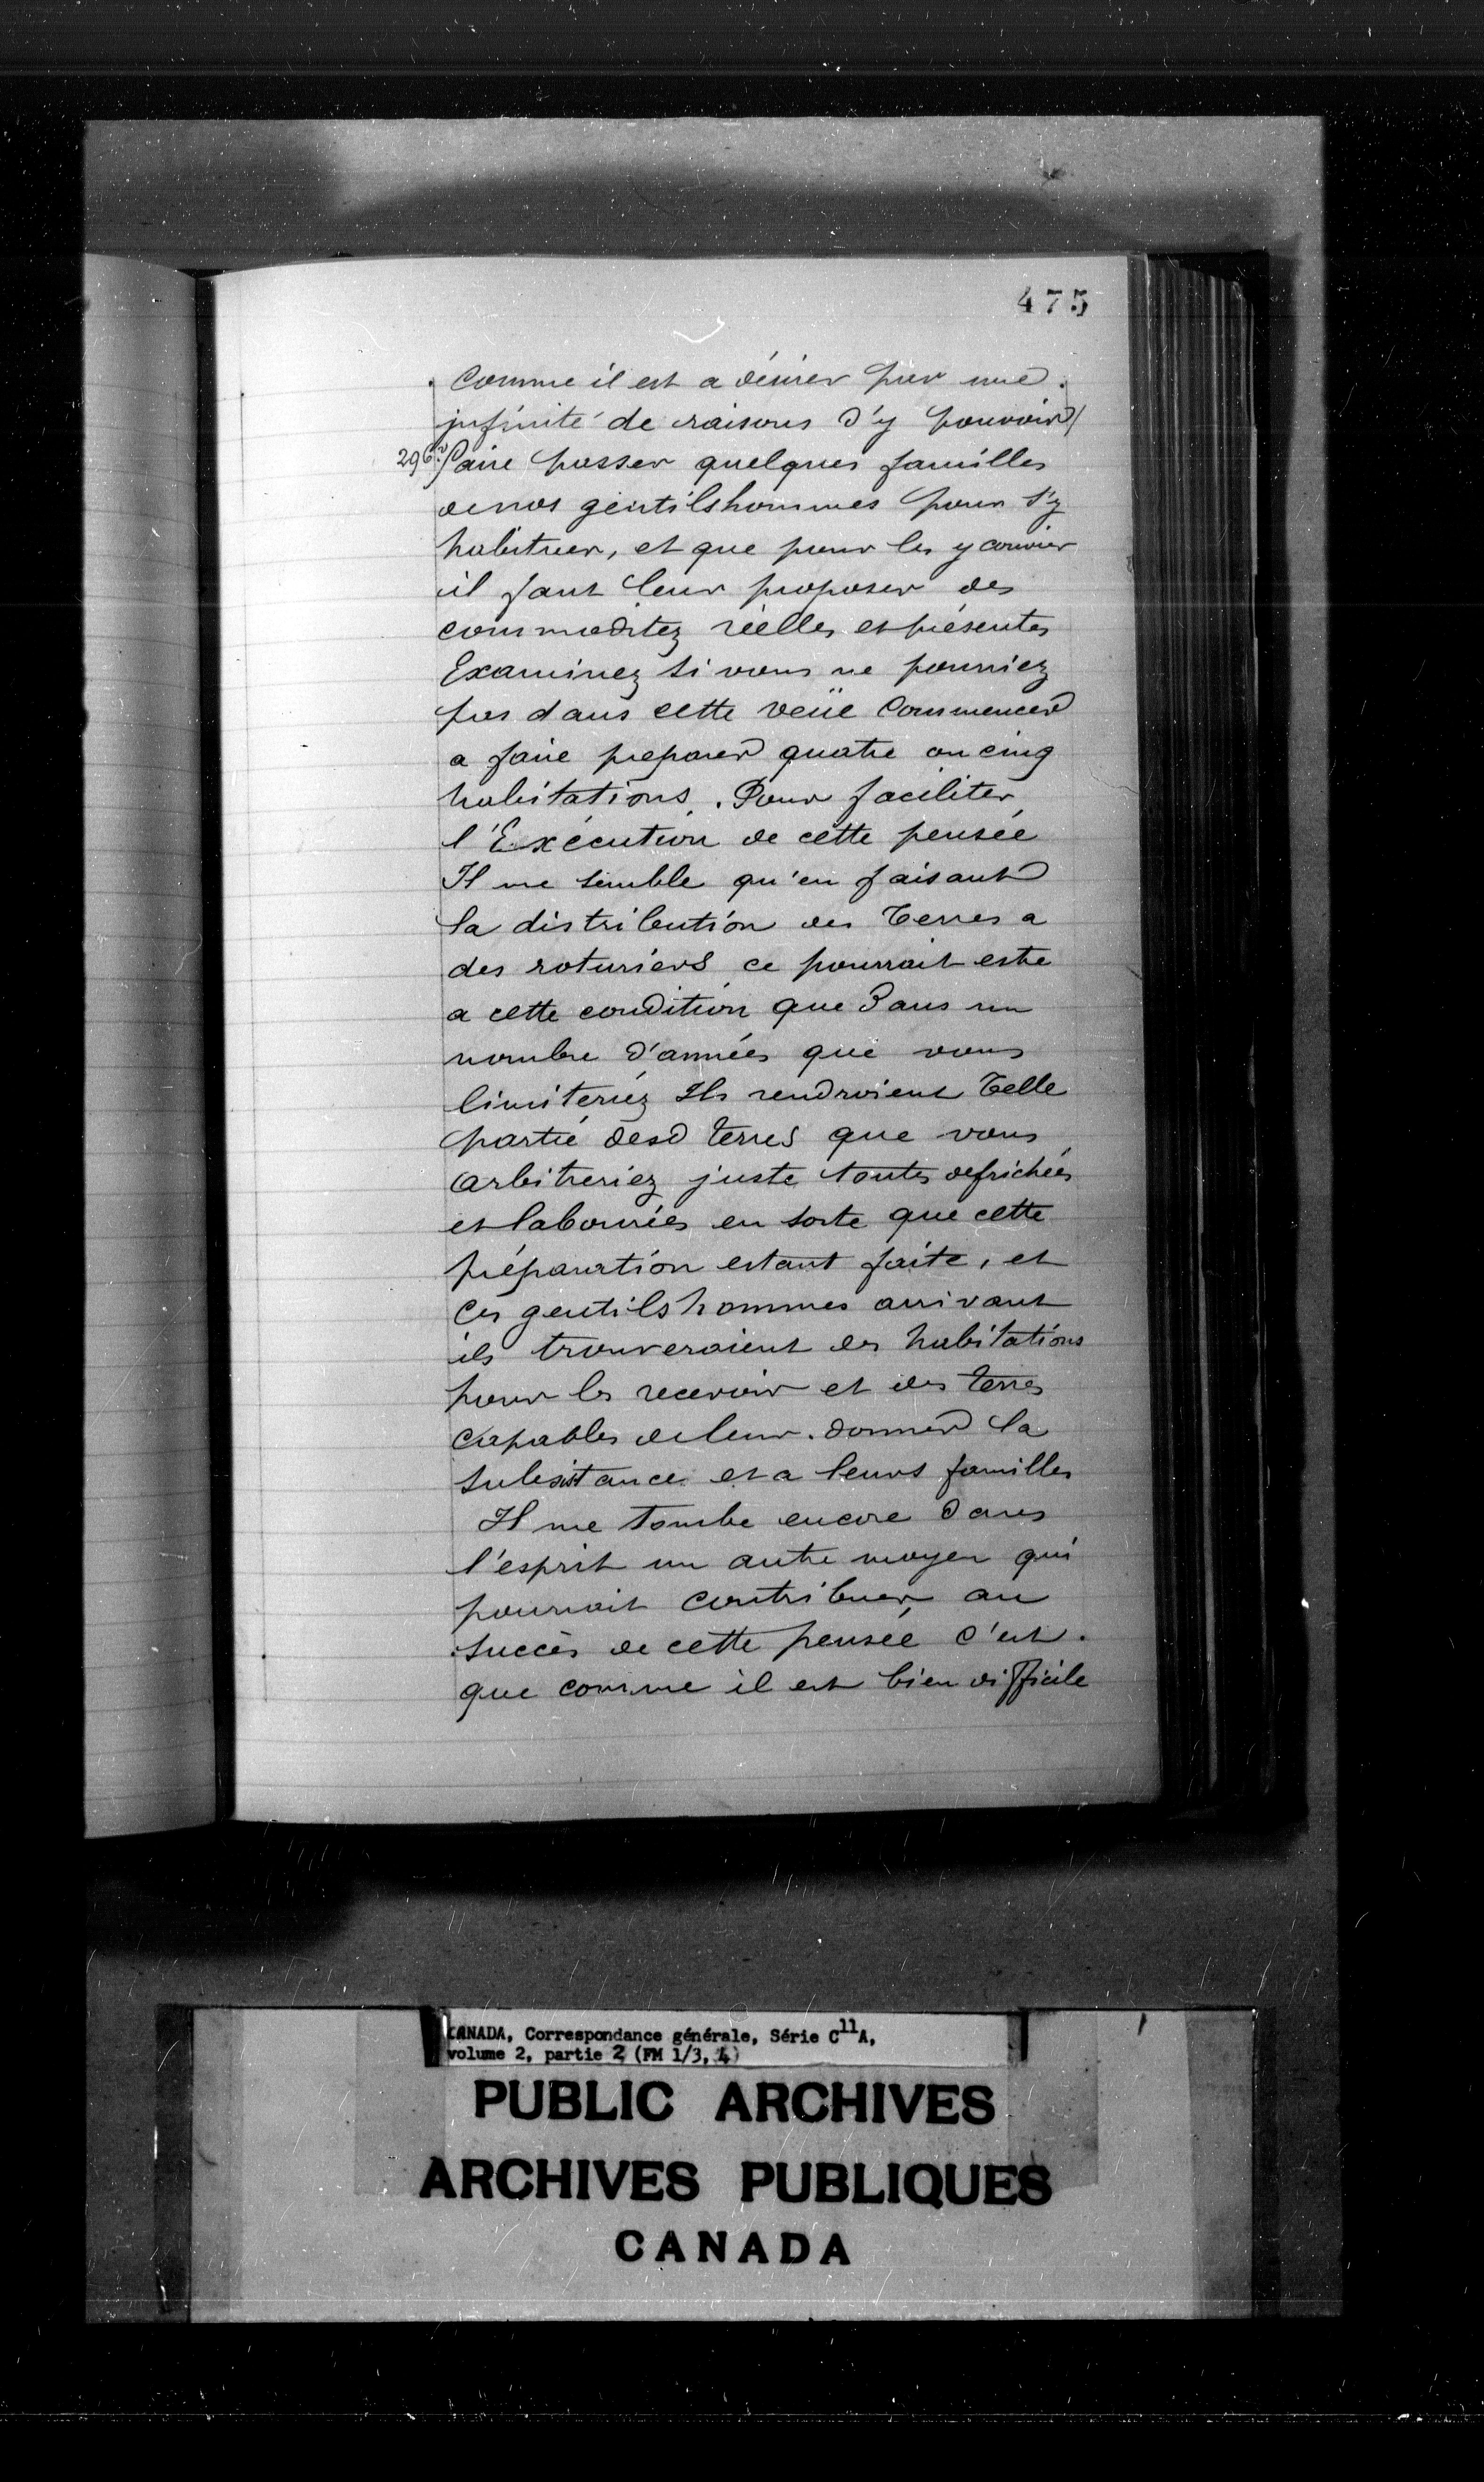 475
Comme il est a désirer par une
jnfinité de raisons d'y pouvoir/
296v. faire passer quelques familles
de nos gentilshommes pour s'y
habituer, et que pour les y convier
il faut leur proposer des
commoditez réelles et présentes
Examinez si vous ne pourriez
pas dans cette veüe Commencer
a faire preparer quatre ou cinq
habitations. Pour faciliter
l'Exécution de cette pensée
Il me semble qu'en faisant
la distribution des Terres a
des roturiers ce pourrait estre
a cette condition que Dans un
nombre d'années que vous
limiteriez Ils rendroient Telle
partie desd terres que vous
arbitreriez juste toutes defrichées
et labourées en sorte que cette
préparation estant faite, et
Ces gentilshommes arrivant
ils trouveraient des habitations
pour les recevoir et des terres
Capables de leur donner la
subsistance et a leurs familles
Il me tombe encore Dans
l'esprit un autre moyen qui
pourroit contribuer au
succès de cette pensée C'est
que comme il est bien difficile
CANADA, Correspondance générale, Série C11A,
volume 2, partie 2 (FM 1/3, 4)
PUBLIC ARCHIVES
ARCHIVES PUBLIQUES
CANADA